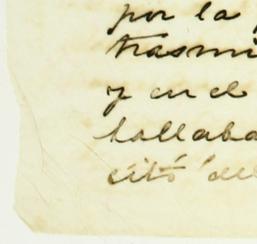 por la
trasmi
y en el
hallaba
citó del